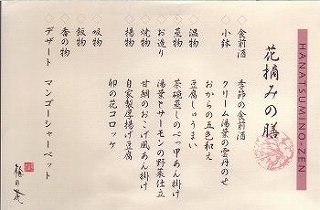 花摘みの膳
HANATSUMINO-ZEN
◇食前酒　季節の食前酒
◇小鉢　クリーム湯葉の雲丹のせ
おからの五色和え
◇温物　豆腐しゅうまい
◇蒸物　茶碗蒸しのべっ甲あん掛け
◇お造り　湯葉とサーモンの野菜仕立
◇焼物　甘鯛のおこげ風あん掛け
◇揚物　自家製厚揚げ豆腐
卯の花コロッケ
◇吸物
◇飯物
◇香の物
◇デザート　マンゴーシャーベット